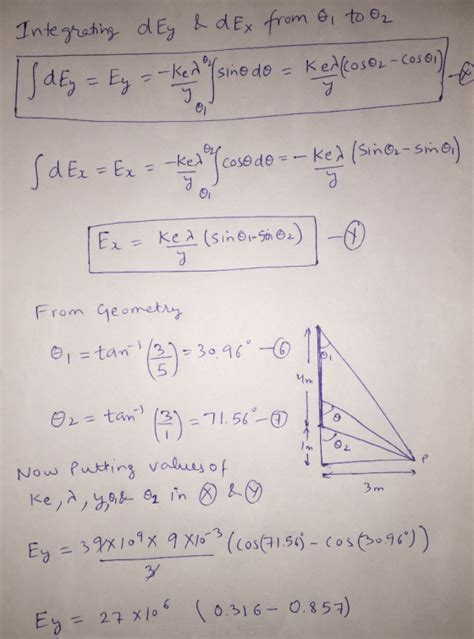 Integrating dEy & dEx from θ1 to θ2
∫dEy = Ey = -Keλ/y θ1∫θ2 sinθdθ = Keλ/y (cosθ2 - cosθ1) -Ⓧ
∫dEx = Ex = -Keλ/y θ1∫θ2 cosθdθ = - Keλ/y (sinθ2 - sinθ1)
Ex = Keλ/y (sinθ1-sinθ2) -Ⓨ
From Geometry
θ1 = tan⁻¹ (3/5) = 30.96° -⑥
θ2 = tan⁻¹ (3/1) = 71.56° -⑦
θ1
4m
θ
1m
θ2
P
3m
Now Putting values of
Ke, λ, y, θ1& θ2 in Ⓧ & Ⓨ
Ey = 39x10⁹x 9x10⁻³/3 (cos(71.56) - cos(30.96°))
Ey = 27 x10⁶ (0.316 - 0.857)